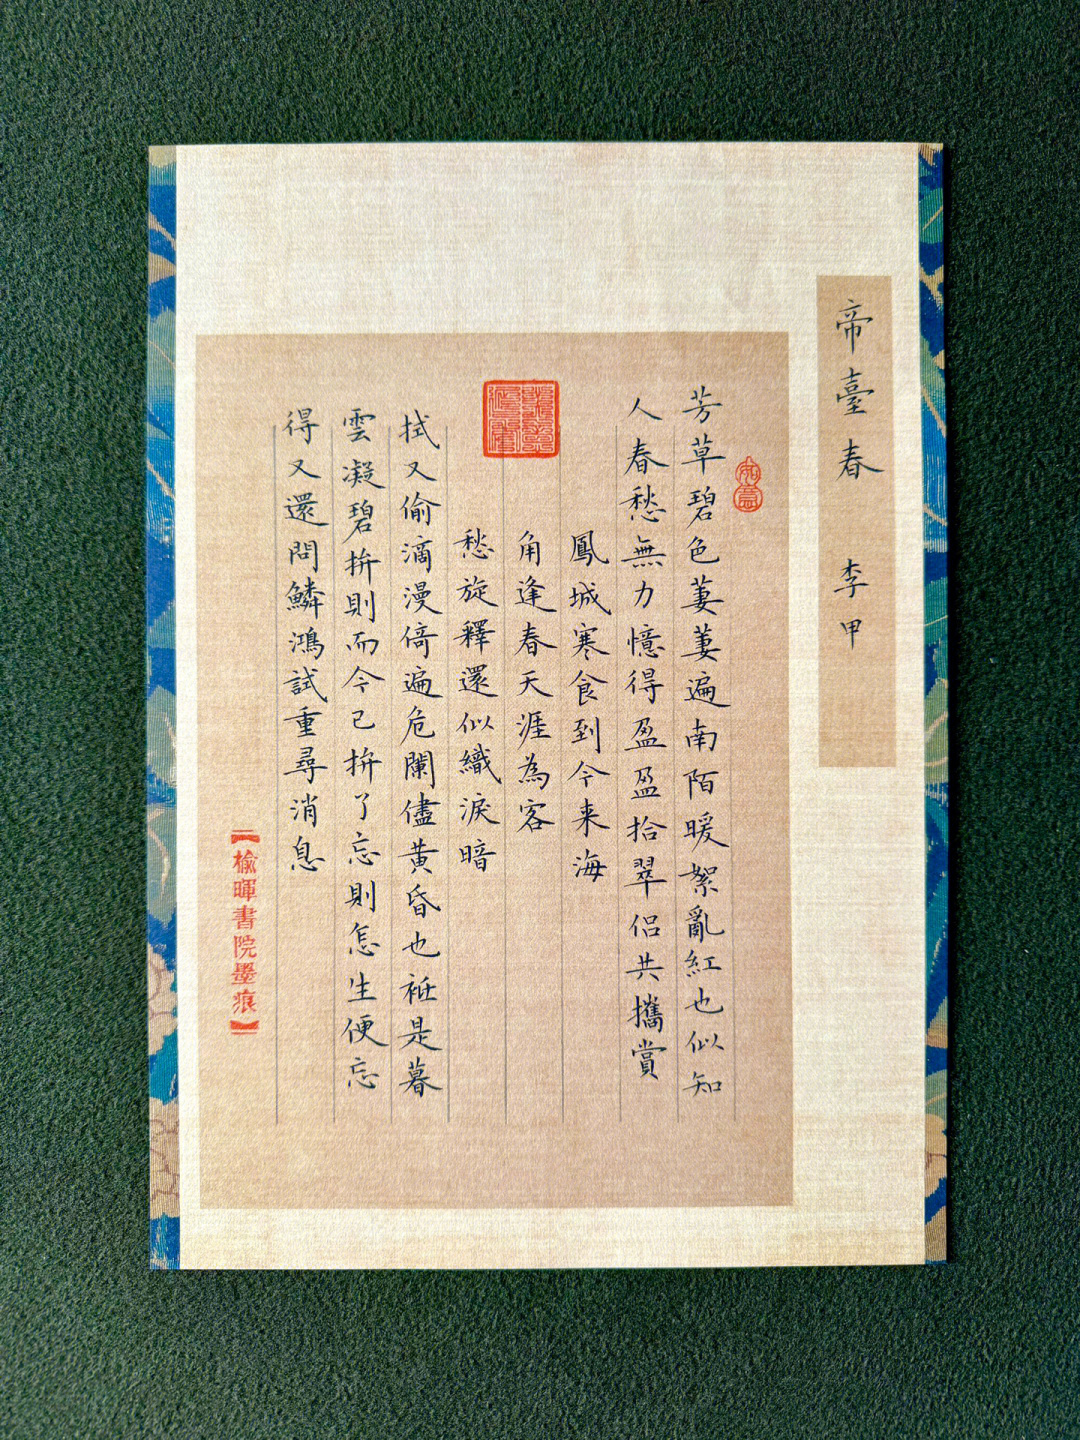 帝臺春
李甲
芳草碧色萋萋遍南陌暖絮亂紅也似知
人春愁無力憶得盈盈拾翠侶共攜賞
鳳城寒食到今来海
角逢春天涯為客
愁旋釋還似織淚暗
拭又偷滴漫倚遍危闌儘黃昏也袛是暮
雲凝碧拚則而今已拚了忘則怎生便忘
得又還問鱗鴻試重尋消息
如意
【榆暉書院墨痕】